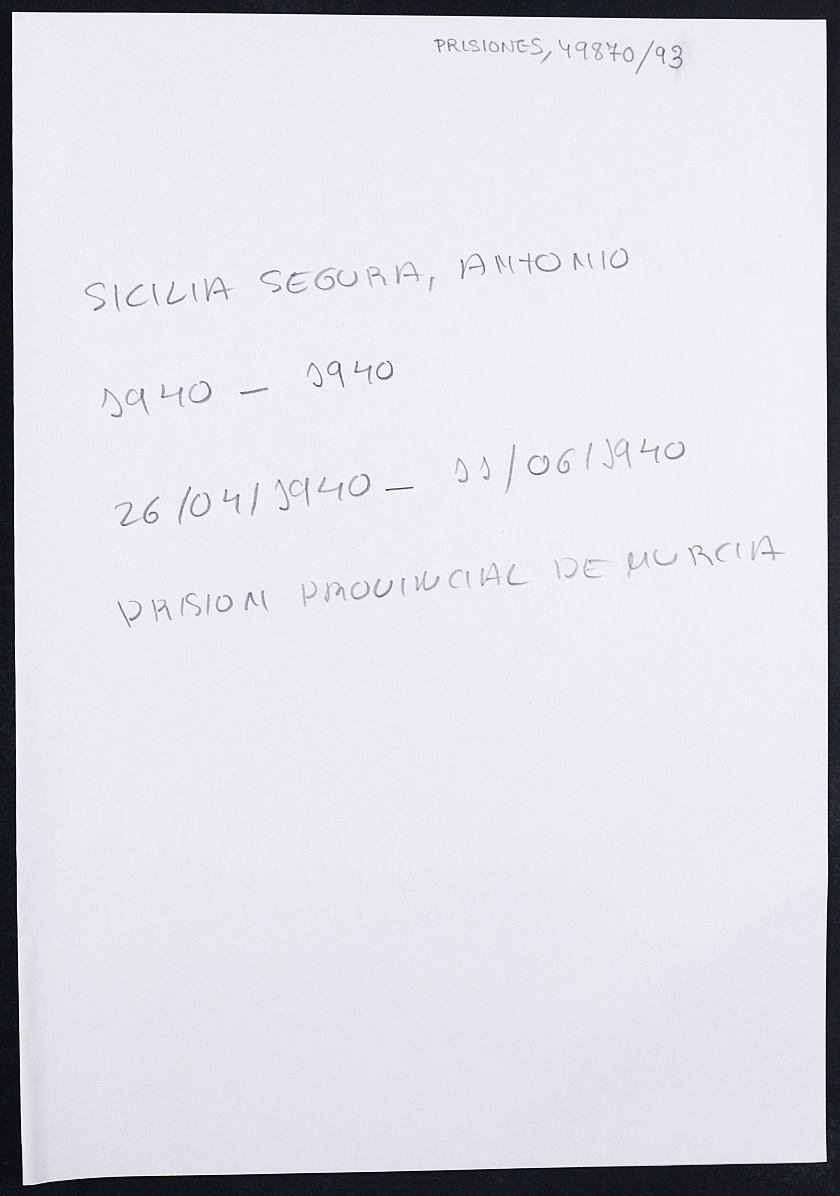 PRISIONES, 49870/93
SICILIA SEGURA, ANTONIO
1940 - 1940
26/04/1940 - 11/06/1940
PRISION PROVINCIAL DE MURCIA